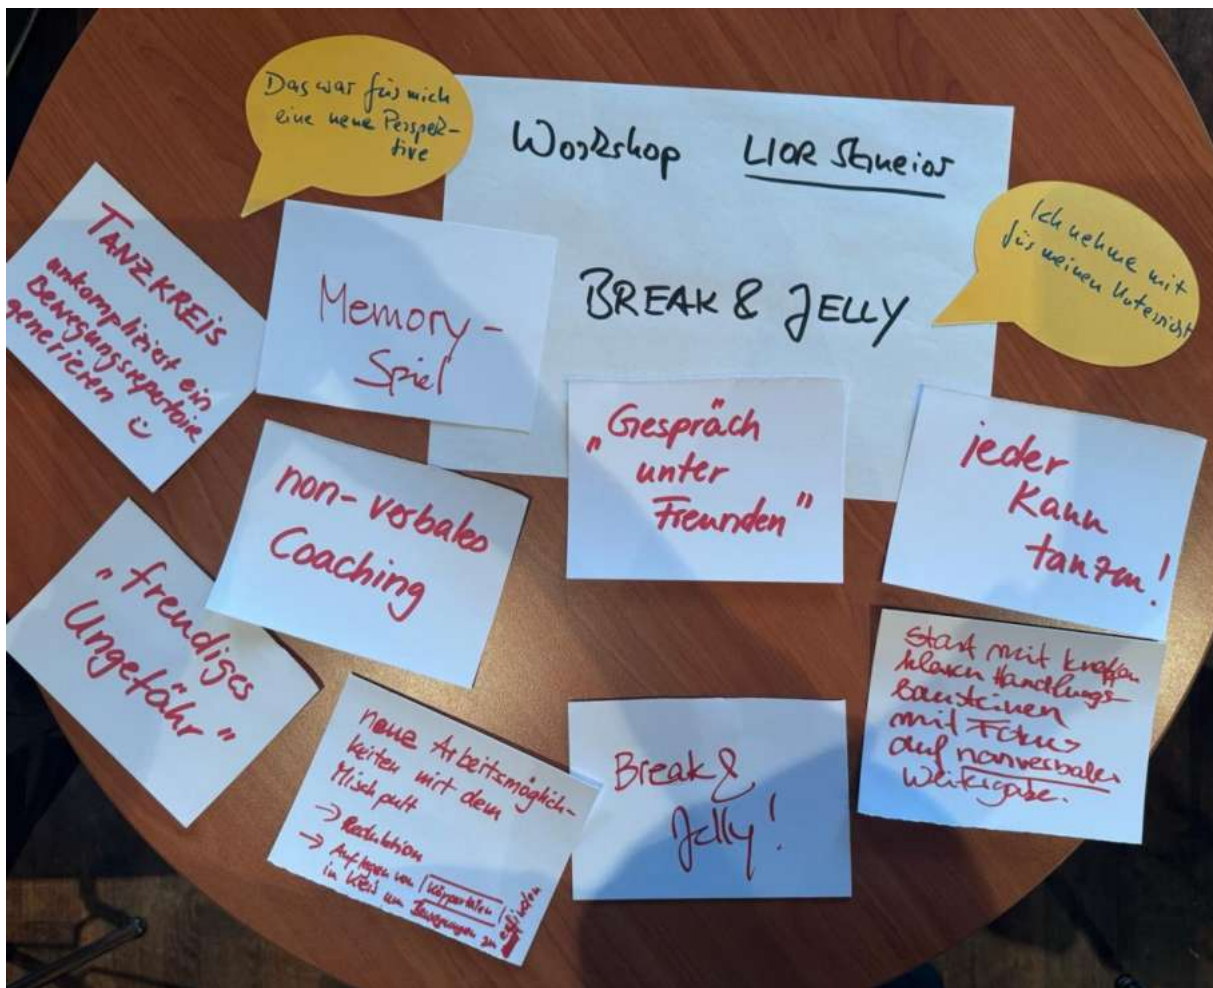 Das war für mich
eine neue Perspek-
tive
Workshop LIOR
BREAK & JELLY
Ich nehme mit
für meinen Unterricht
TANZKREIS
unkompliziert ein
Bewegungsrepertoire
generieren
Memory-
Spiel
non-verbales
Coaching
„Gespräch
unter
Freunden"
jeder
kann
tanzen!
„freudiges
Ungefähr"
neue Arbeitsmöglich-
keiten mit dem
Mischpult
→ Reduktion
→ Auflegen von Körperteilen
in Kreis um Bewegungen zu
Break &
Jelly!
Start mit knappen
klaren Handlungs-
bausteinen
mit Fokus
auf nonverbaler
Weitergabe.